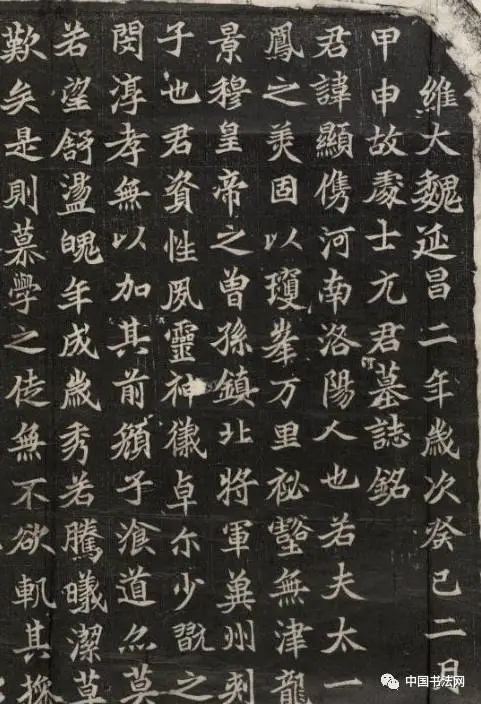 維大魏延昌二年歲次癸巳二月
甲申故處士元君墓誌銘
君諱顯儁河南洛陽人也若夫太一
鳳之美固以瓊峯万里祕壑無津龍
景穆皇帝之曽孫鎮北將軍冀州刺
子也君資性夙靈神儀卓尒少翫之
閔淳孝無以加其前顏子飡道亦莫
若望舒盪魄年成歲秀若騰曦潔草
歎矣是則慕學之徒無不欲軌其操
中国书法网